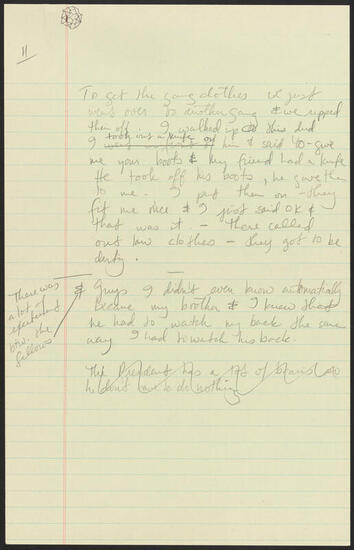 11
To get the gang clothes we just
went over to another gang & we ripped
them off. I walked up to this dud
I took out a knife on him & said to - give
me your boots & my friend had a knife
He took off his boots, he gave them
to me. I put them on - they
fit me nice & I just said OK &
that was it. - There called
out law clothes - they got to be
dirty.
There was
a lot of
btw. the
fellows
& Guys I didn't even know automatically
became my brother & I knew that
he had to watch my back the same
way I had to watch his back.
The President has a lot of brains so
he don't have to do nothing